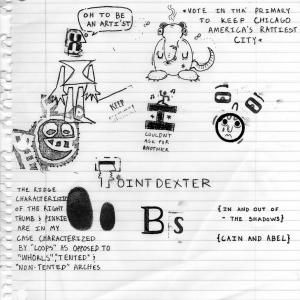 OH TO BE
AN ARTI'ST
*VOTE IN THA' PRIMARY
TO KEEP CHICAGO
AMERICA'S RATTIEST
CITY*
KEEP
COULDNT
ASK FOR
ANOTHER
POINTDEXTER
THE RIDGE
CHARACTERISTIC
OF THE RIGHT
THUMB & PINKIE
ARE IN MY
CASE CHARACTERIZED
BY "LOOPS" AS OPPOSED TO
"WHORLS", "TENTED" &
"NON-TENTED" ARCHES
B s
{IN AND OUT OF
THE SHADOWS}
{CAIN AND ABEL}